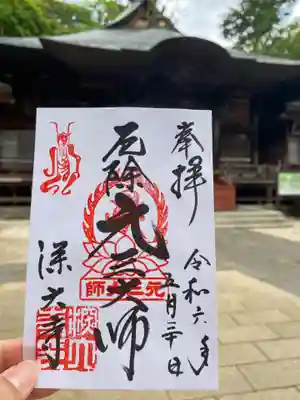 奉拝
令和六年
五月三十日
厄除
元三大師
元三大師
深大寺